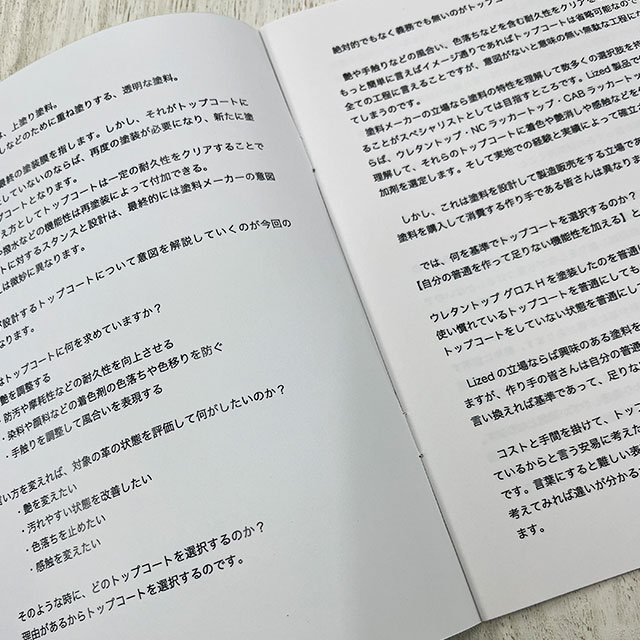 、上塗り塗料。
しなどのために重ね塗りする、透明な塗料。
最終の塗装膜を指します。しかし、それがトップコートに
としていないのならば、再度の塗装が必要になり、新たに塗
プコートとなります。
え方としてトップコートは一定の耐久性をクリアすることで
撥水などの機能性は再塗装によって付加できる。
ートに対するスタンスと設計は、最終的には塗料メーカーの意図
は微妙に異なります。
が設計するトップコートについて意図を解説していくのが今回の
なります。
はトップコートに何を求めていますか？
艶を調整する
・防汚や摩耗性などの耐久性を向上させる
・染料や顔料などの着色剤の色落ちや色移りを防ぐ
・手触りを調整して風合いを表現する
言い方を変えれば、対象の革の状態を評価して何がしたいのか？
・艶を変えたい
・汚れやすい状態を改善したい
・色落ちを止めたい
・感触を変えたい
そのような時に、どのトップコートを選択するのか？
理由があるからトップコートを選択するのです。
絶対的でもなく義務でも無いのがトップコ
艶や手触りなどの風合い、色落ちなどを含む耐久性をクリアを
もっと簡単に言えばイメージ通りであればトップコートは省略可能なので
全ての工程に言えることですが、意図がないと意味の無い無駄な工程にな
てしまうのです。
塗料メーカーの立場なら塗料の特性を理解して数多くの選択肢を
ることがスペシャリストとしては目指すところです。Lized 製品で
らば、ウレタントップ・NCラッカートップ・CABラッカート
理解して、それらのトップコートに着色や艶消しや感触などを
加剤を選定します。そして実地での経験と実績によって確立
しかし、これは塗料を設計して製造販売をする立場であ
塗料を購入して消費する作り手である皆さんは異なりま
では、何を基準でトップコートを選択するのか？
【自分の普通を作って足りない機能性を加える】
ウレタントップ グロス H を塗装したのを普通に
使い慣れているトップコートを普通にしても
トップコートをしていない状態を普通にし
Lized の立場ならば興味のある塗料を
ますが、作り手の皆さんは自分の普通
言い換えれば基準であって、足りな
コストと手間を掛けて、トップ
ているからと言う安易に考えた
です。言葉にすると難しい表
考えてみれば違いが分かる
ます。